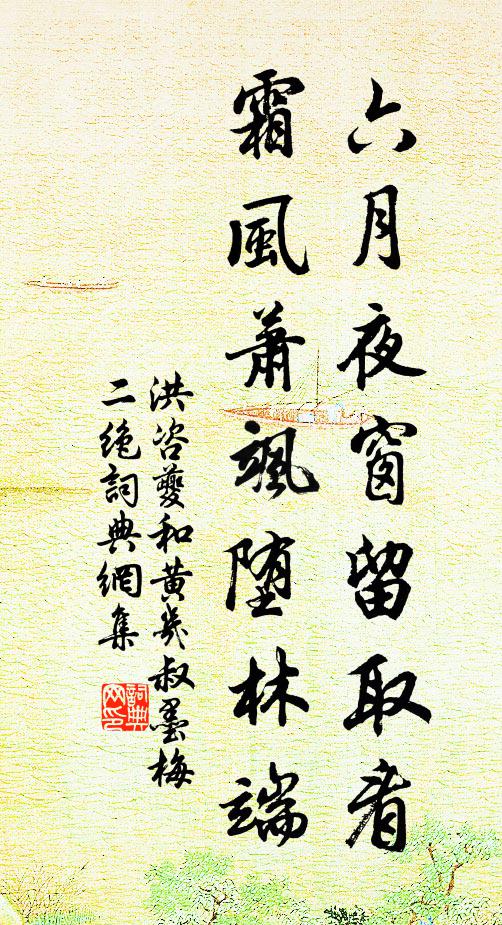 六月夜窗留取看
霜風蕭颯堕林端
洪咨夔和黄幾叔墨梅
二絶詞典網集
詞典
网印